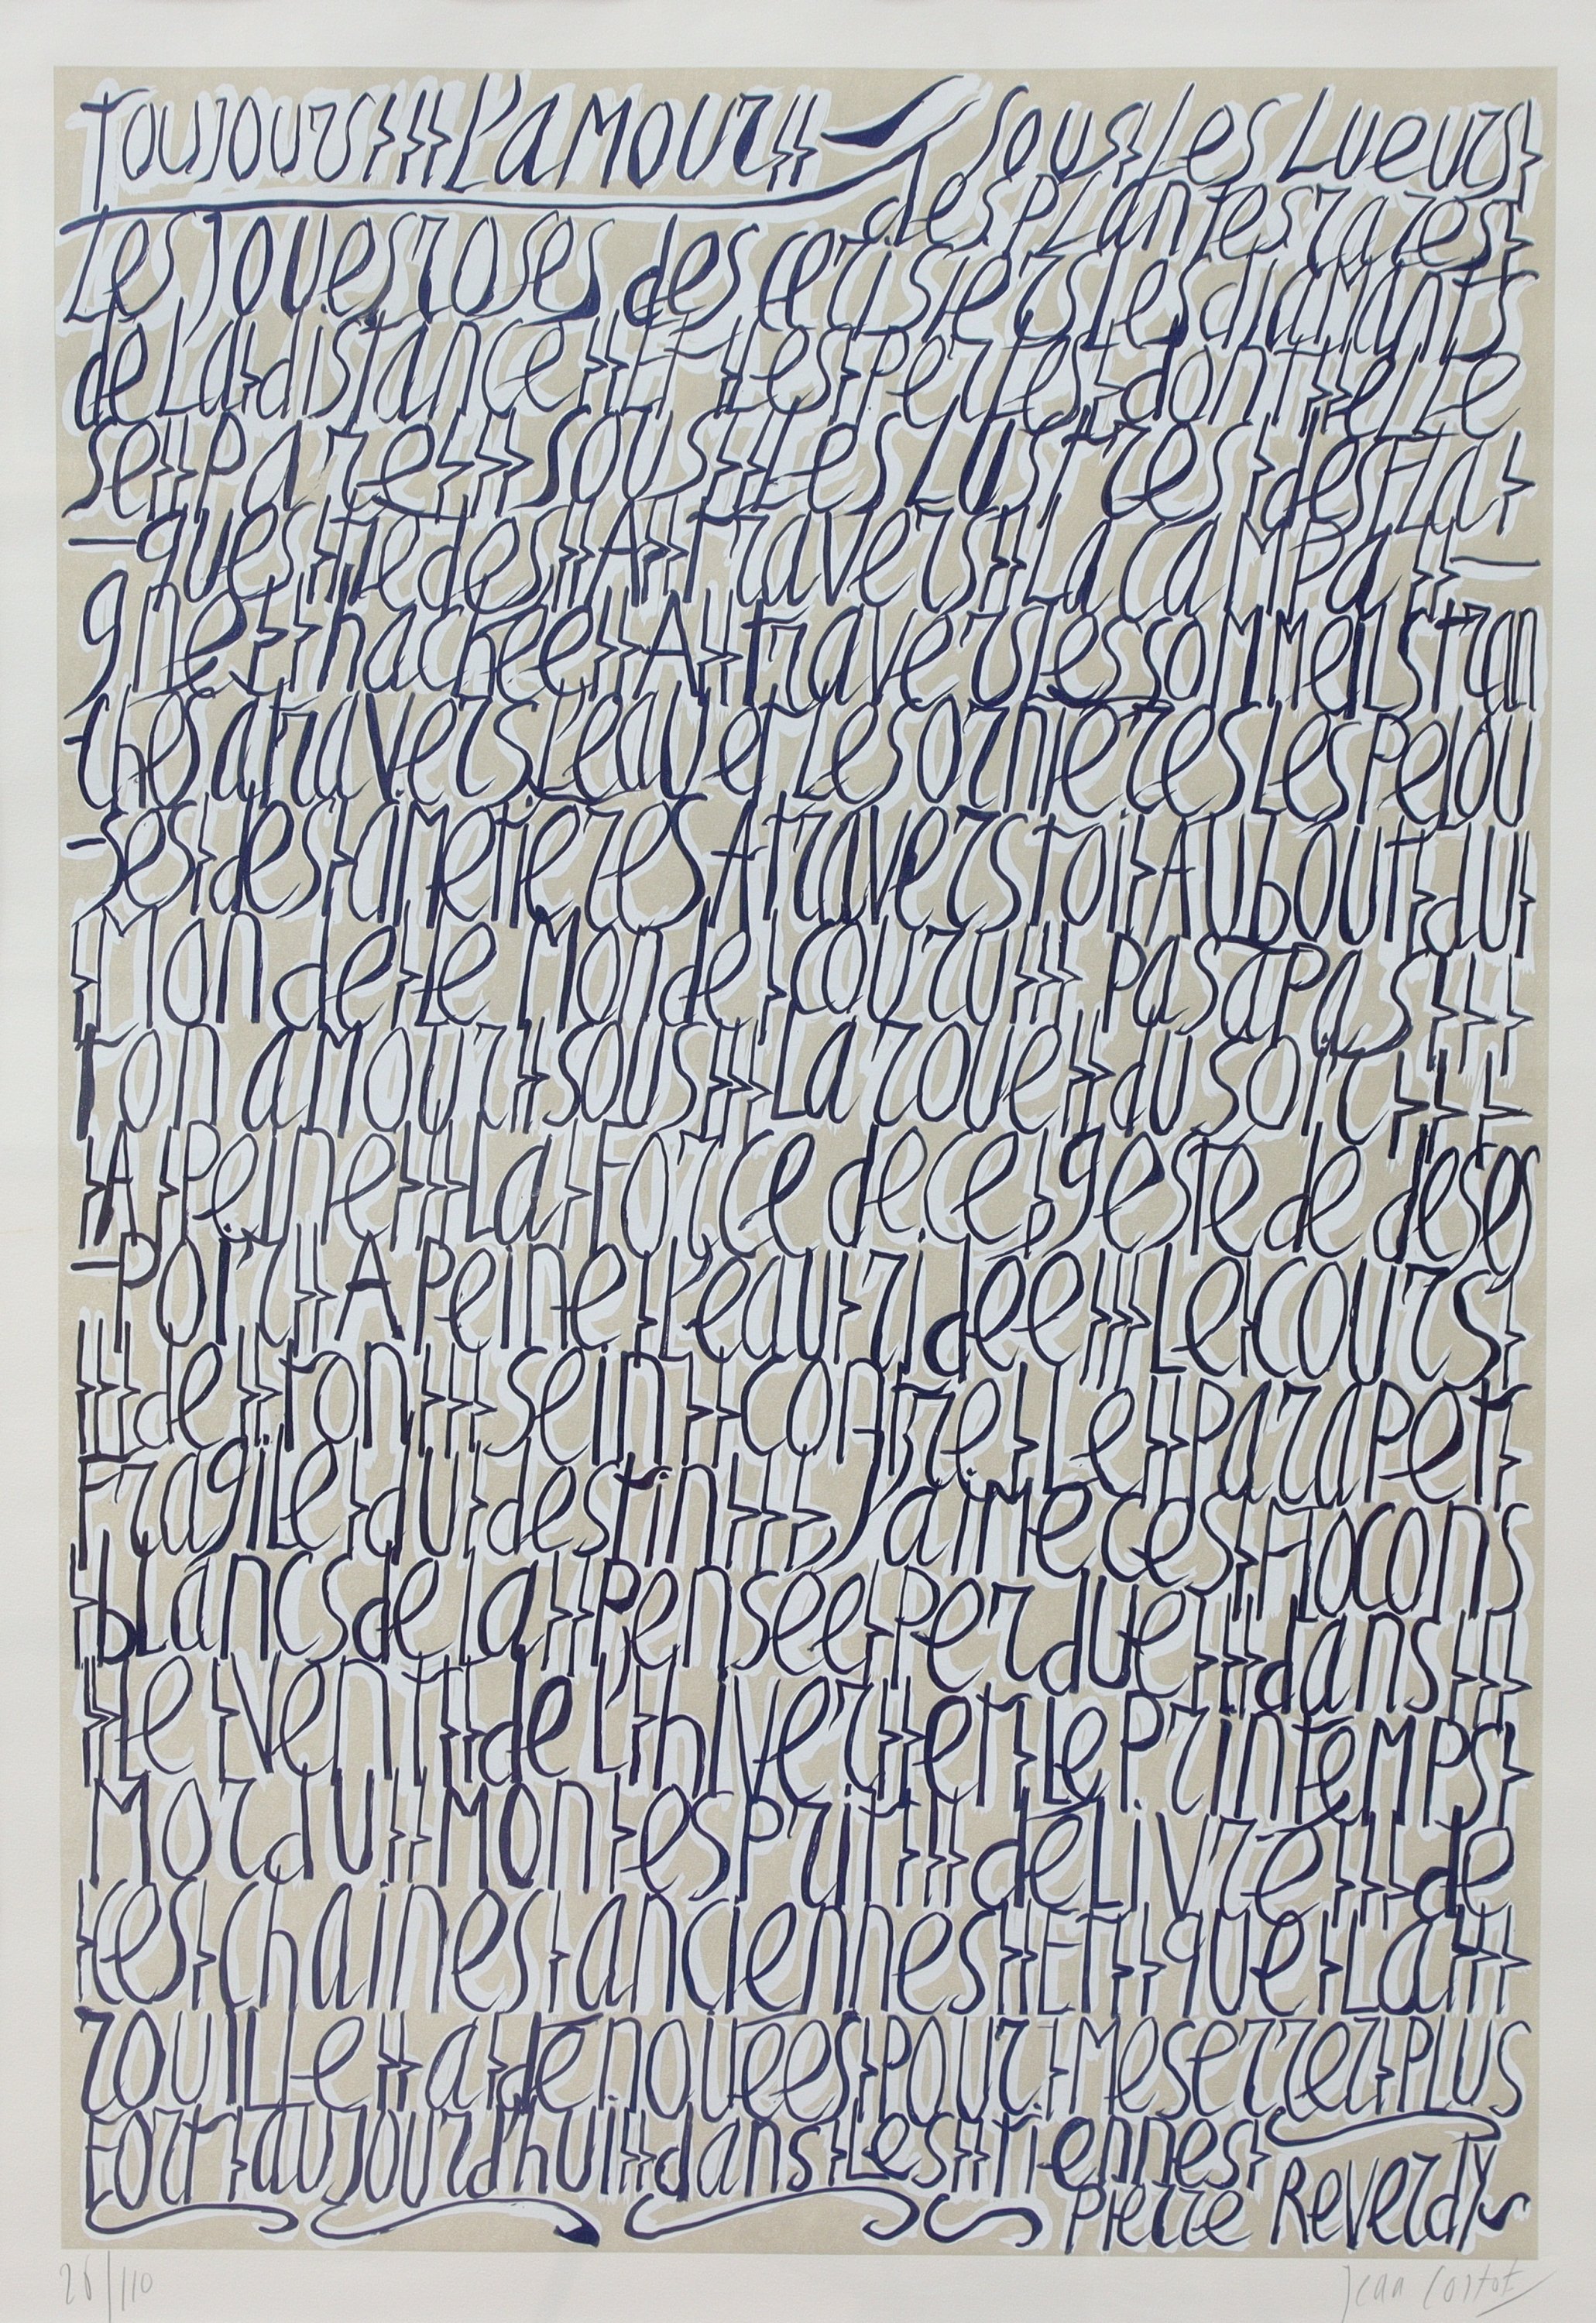 Toujours L'amour
Sous Les Lueurs
des plantes rares
Les Joues roses des cerisiers Les diamants
de La distance Et Les perles dont elle
se pare sous Les Lustres des Fla-
-ques tiedes A travers La campa-
gne hachee A travers Les sommeils tran
-ches a travers L'eau et Les ornieres Les pelou
-ses des cimetieres A travers toi Au bout du
Monde Le Monde couru pas a pas
Ton amour sous La roue du soir
A peine La Force de ce geste de deses
-poir A peine L'eau ridee Le cours
de ton sein contre Le parapet
Fragile du destin J'aime ces Flocons
blancs de la pensee perdue dans
Le vent de L'hiver et Le printemps
Mordu Mon esprit delivre de
ces chaines anciennes Et que La
rouille a denouees pour Me serrer plus
Fort aujourd'hui dans Les tiennes
Pierre Reverdy
26/110
Jean Cortot